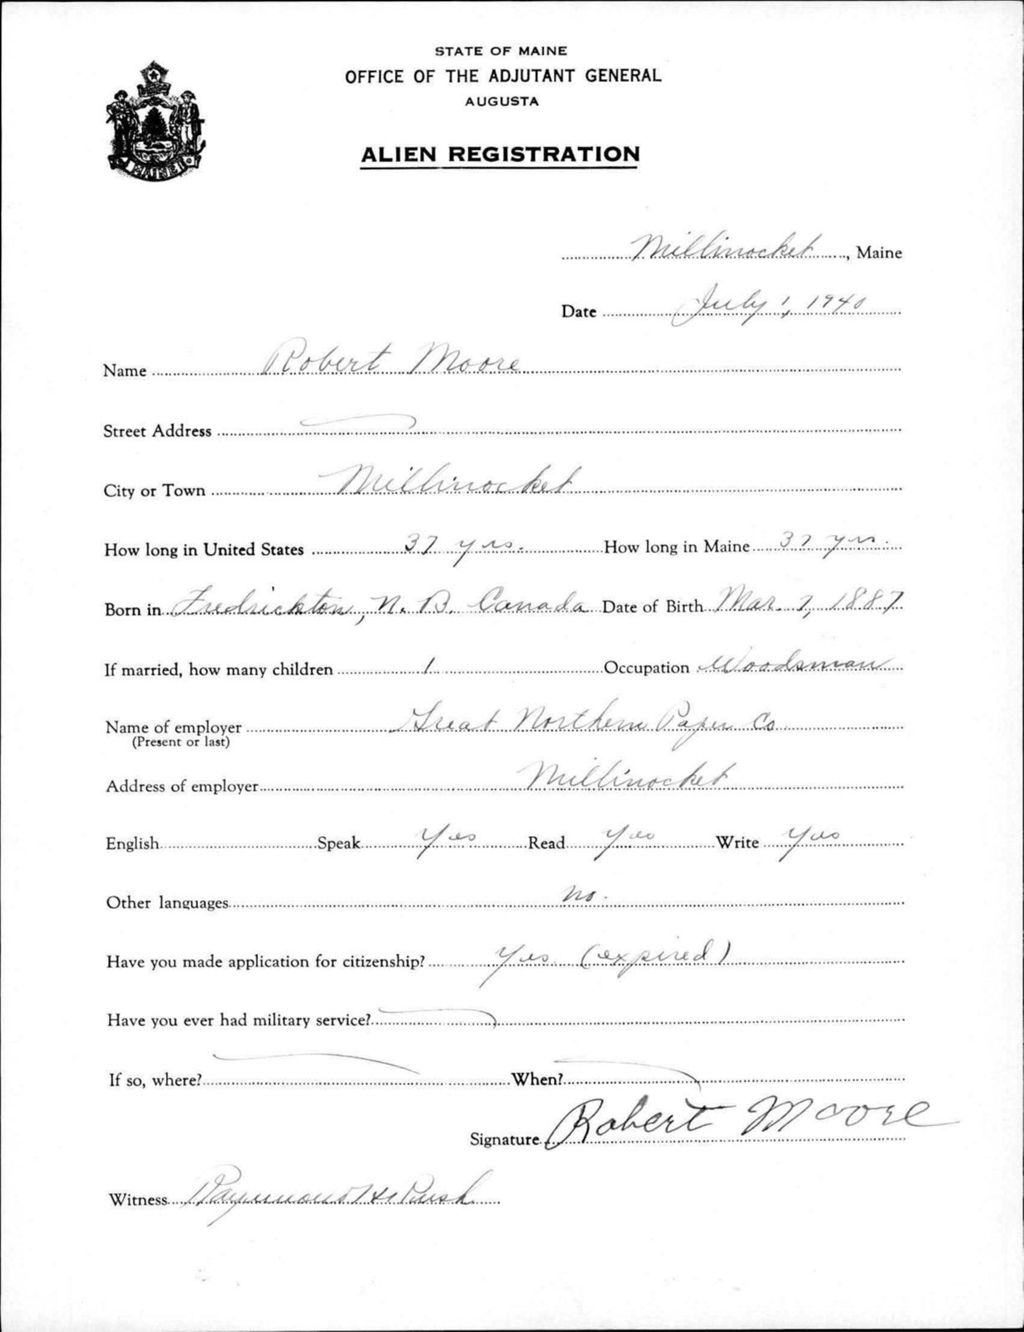 STATE OF MAINE
OFFICE OF THE ADJUTANT GENERAL
AUGUSTA
ALIEN REGISTRATION
MAINE
Millinocket, Maine
Date July 1, 1940
Name Robert Moore
Street Address
City or Town Millinocket
How long in United States 37 yrs. How long in Maine 37 yrs.
Born in Fredrickton, N. B. Canada Date of Birth Mar. 7, 1887
If married, how many children 1 Occupation Woodsman
Name of employer Great Northern Paper Co
(Present or last)
Address of employer Millinocket
English Speak Yes Read Yes Write Yes
Other languages no.
Have you made application for citizenship? Yes (expired)
Have you ever had military service?
If so, where? When?
Signature Robert Moore
Witness Raymond H. Rush